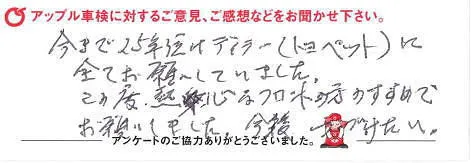 アップル車検に対するご意見、ご感想などをお聞かせ下さい。
今まで25年近くディーラー(トヨペット)に
全てお願いしていました。
この度 熱心なフロントの方のすすめで
お願いしました。今後
アンケートのご協力ありがとうございました。